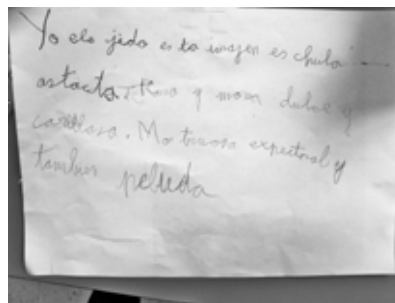 Yo elo jido esta imajen es chula
astasta. Rosa y mora dulse y
cariñosa. Mo truosa expectral y
tambien peluda